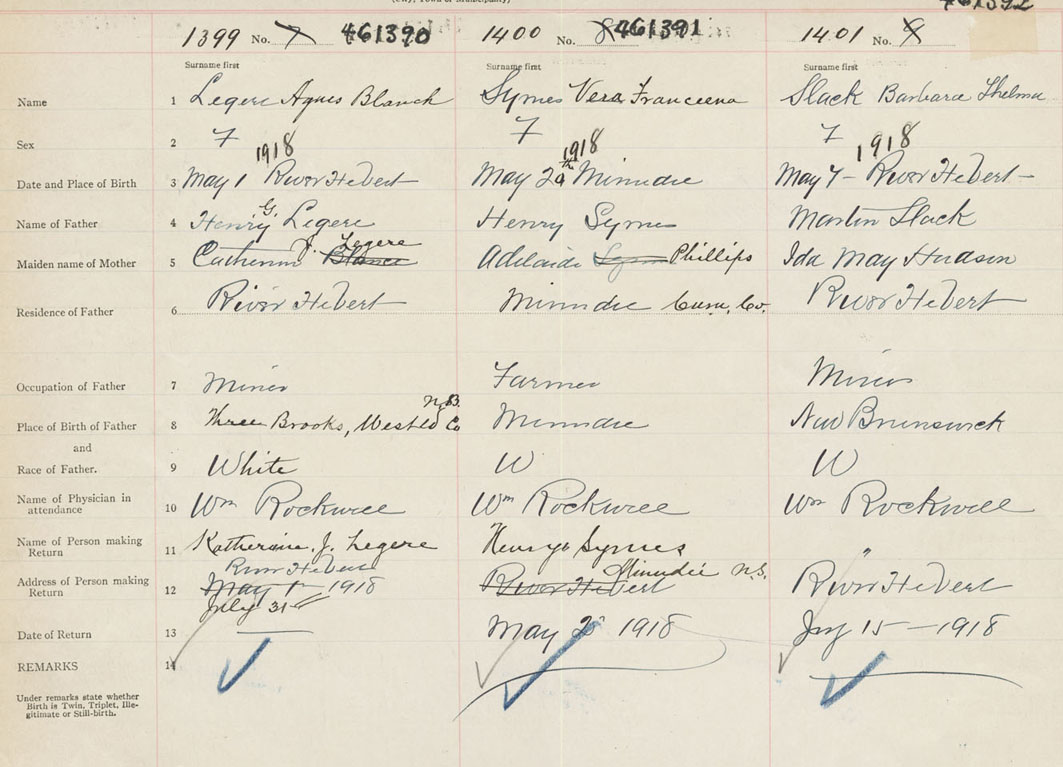 (City, Town or Municipality)
461392
1399 No. 7 461390 1400 No. 8 461391 1401 No. 9
Surname first Surname first Surname first
Name 1 Legere Agnes Blanch Symes Vera Franceena Slack Barbara Thelma
Sex 2 F F F
1918 1918 1918
Date and Place of Birth 3 May 1 River Hebert May 2nd Minudie May 7 - River Hebert -
Name of Father 4 Henry G. Legere Henry Symes Martin Slack
Maiden name of Mother 5 Catherine J. Blance Legere Adelaide Symes Phillips Ida May Hudson
Residence of Father 6 River Hebert Minudie Cum. Co. River Hebert
Occupation of Father 7 Miner Farmer Miner
N.B.
Place of Birth of Father 8 Three Brooks, Westld Co Minudie New Brunswick
and
Race of Father. 9 White W W
Name of Physician in
attendance 10 Wm Rockwell Wm Rockwell Wm Rockwell
Name of Person making
Return 11 Katherine. J. Legere Henry Symes "
River Hebert Minudie N.S.
Address of Person making
Return 12 May 1 - 1918 River Hebert River Hebert
July 31st
Date of Return 13 May 2 1918 15 - 1918
REMARKS 14
Under remarks state whether
Birth is Twin, Triplet, Ille-
gitimate or Still-birth.